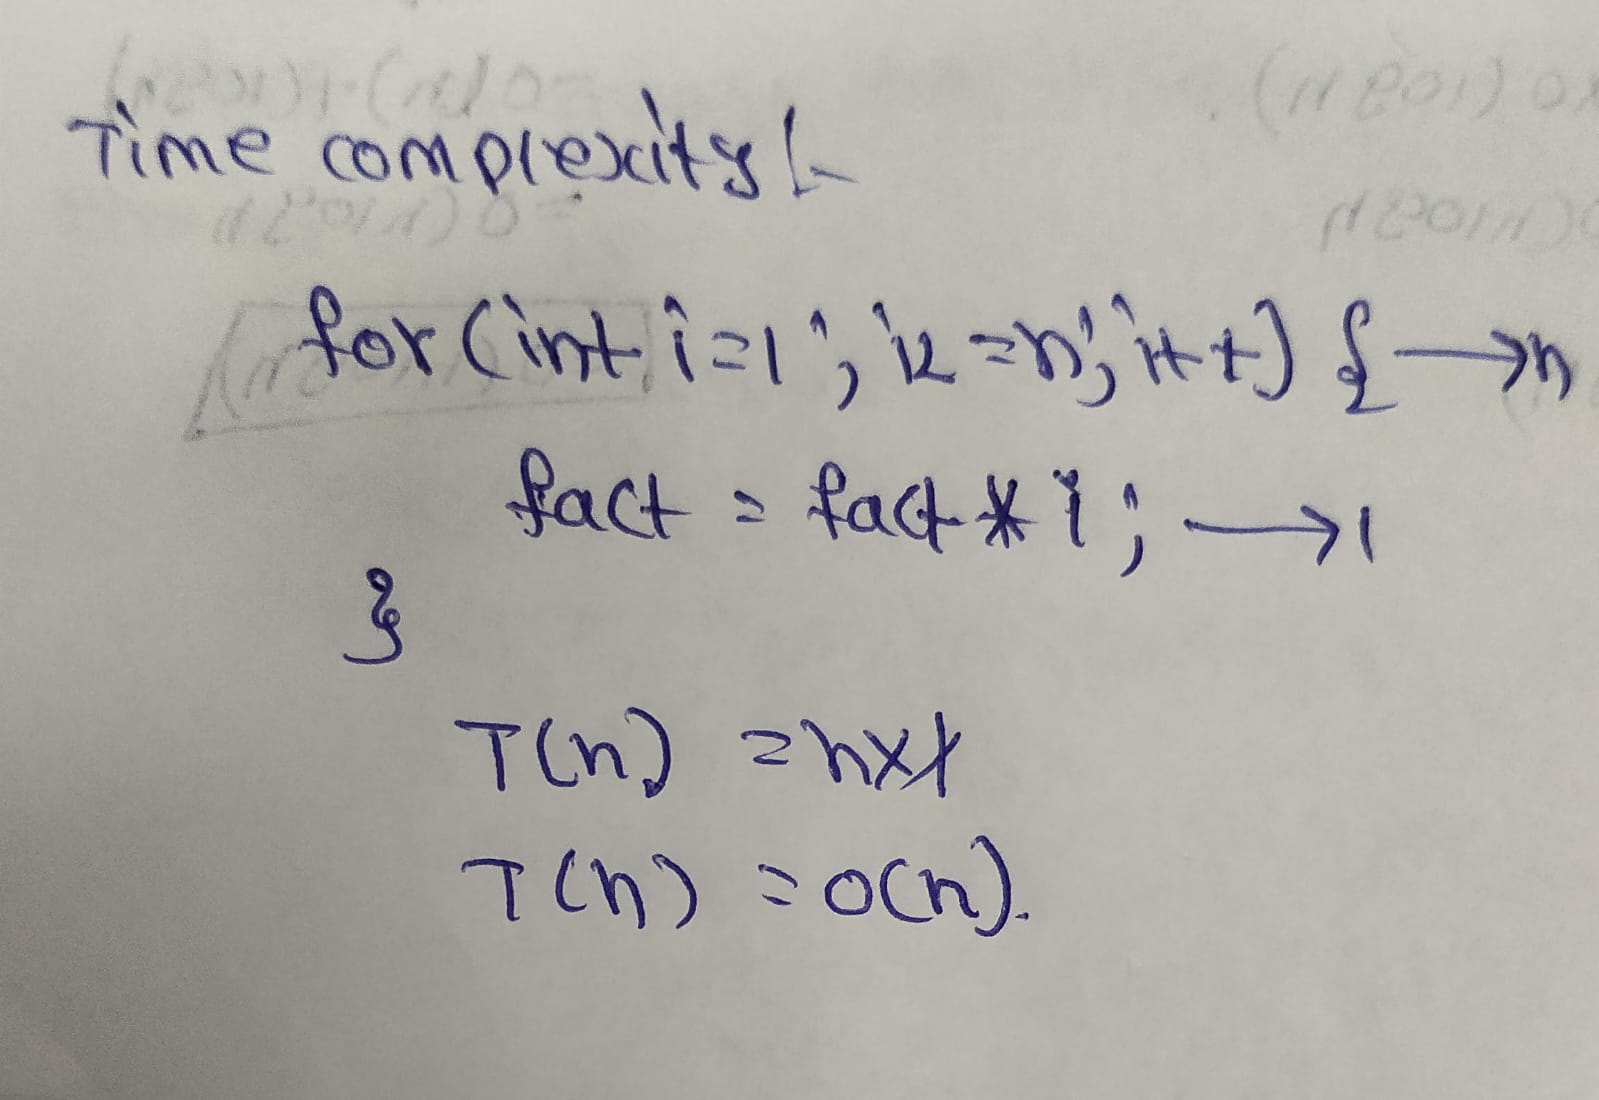 Time complexity :-
for (int i=1; i<=n; i++) { → n
fact = fact * i; → 1
}
T(n) = n×1
T(n) = O(n).